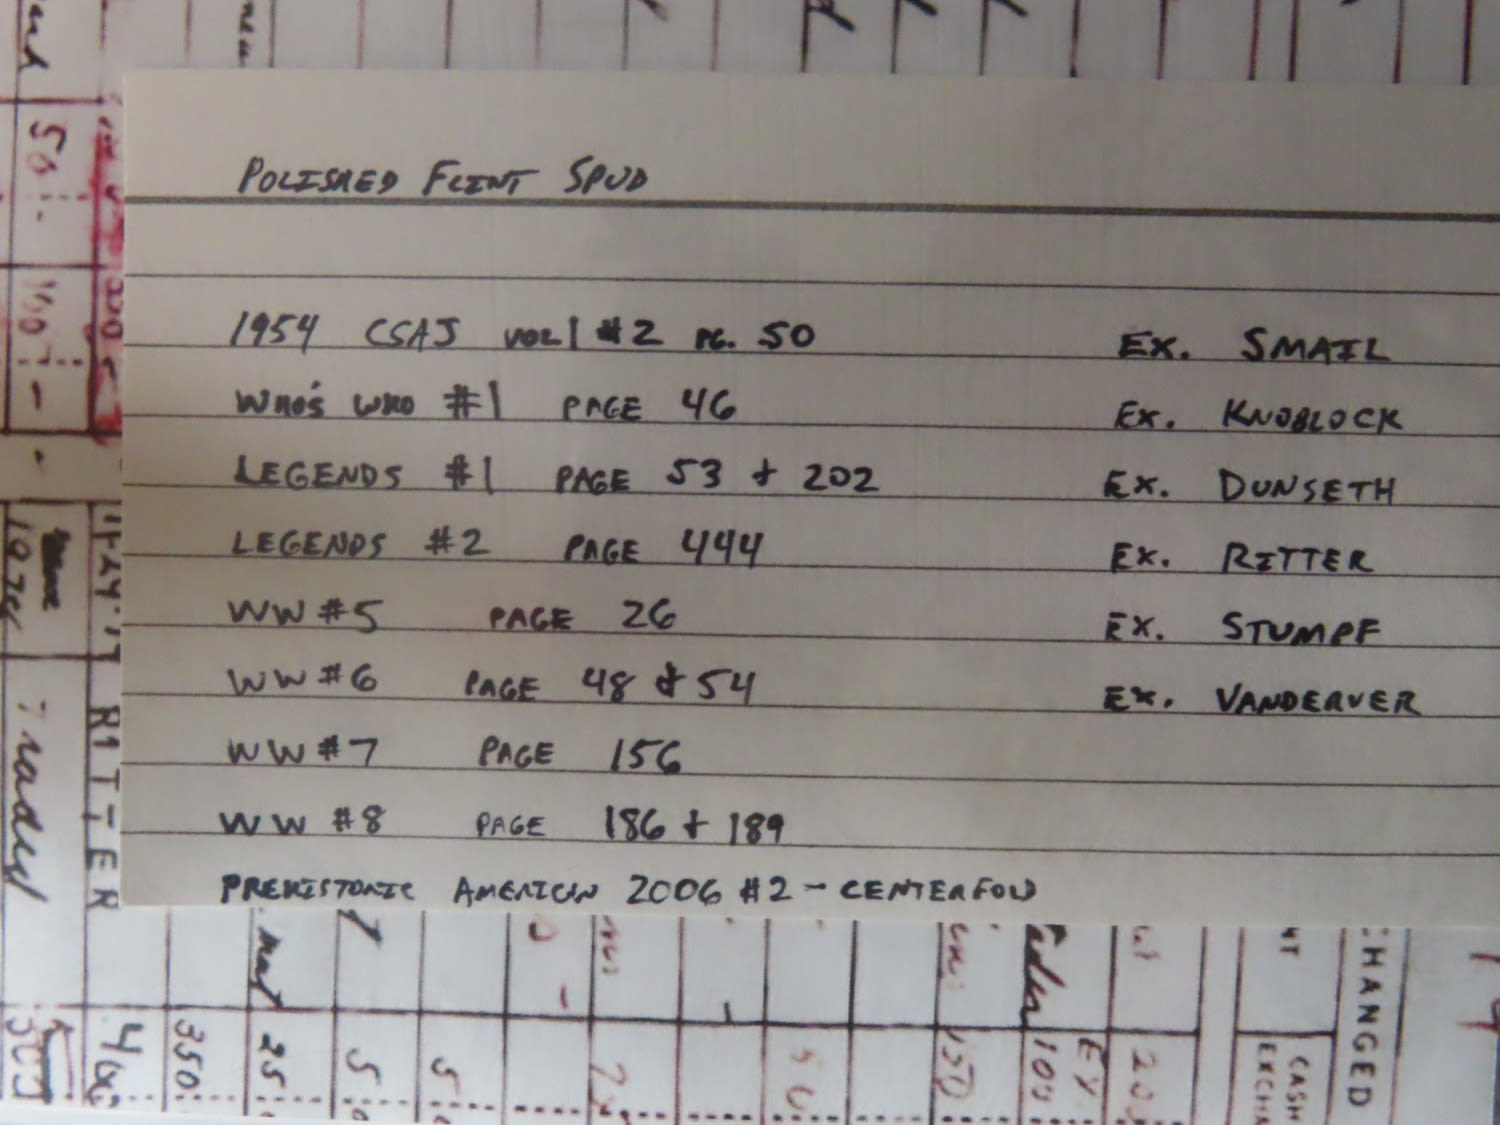 POLISHED FLINT SPUD
1954 CSAJ VOL 1 #2 PG. 50 EX. SMAIL
WHO'S WHO #1 PAGE 46 EX. KNOBLOCK
LEGENDS #1 PAGE 53 + 202 EX. DUNSETH
LEGENDS #2 PAGE 444 EX. RITTER
WW #5 PAGE 26 EX. STUMPF
WW #6 PAGE 48 & 54 EX. VANDERVER
WW #7 PAGE 156
WW #8 PAGE 186 + 189
PREHISTORIC AMERICAN 2006 #2 - CENTERFOLD
50
RITTER
350
25
5
5
150
100
CASH
HANGED